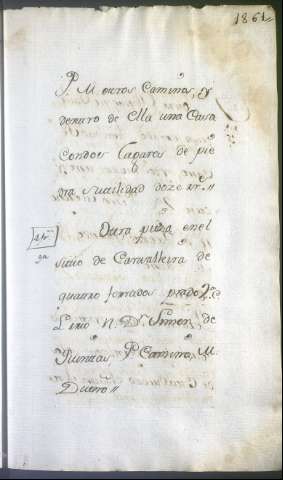 1861
P. M otros Caminos, y
dentro de ella una Casa
con dos Lagares de pie
dra su utilidad doze rr.s //
Otra pieza en el
sitio de Carvalheira de
quatro ferrados prado 2.ª C
L.te N. D.n Simon de
Puentes P. Camino, M.
Duero //